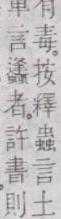 有毒。按釋蟲言土
單言蠭者。許書則